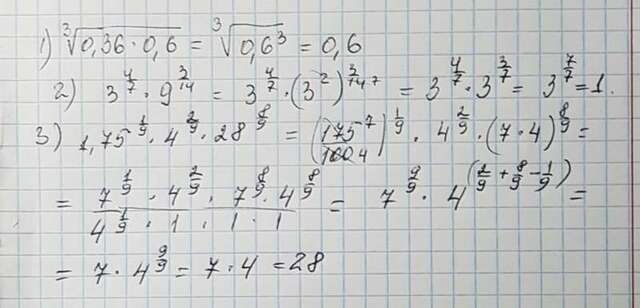 1) ∛(0,36·0,6) = ∛(0,6³) = 0,6
2) 3^(4/7) · 9^(3/14) = 3^(4/7) · (3²)^(3/14 7) = 3^(4/7) · 3^(3/7) = 3^(7/7) = 1.
3) 1,75^(1/9) · 4^(2/9) · 28^(8/9) = (175 7/100 4)^(1/9) · 4^(2/9) · (7·4)^(8/9) =
= (7^(1/9) · 4^(2/9) · 7^(8/9) · 4^(8/9))/(4^(1/9) · 1 · 1 · 1) = 7^(9/9) · 4^(2/9 + 8/9 − 1/9) =
= 7 · 4^(9/9) = 7 · 4 = 28